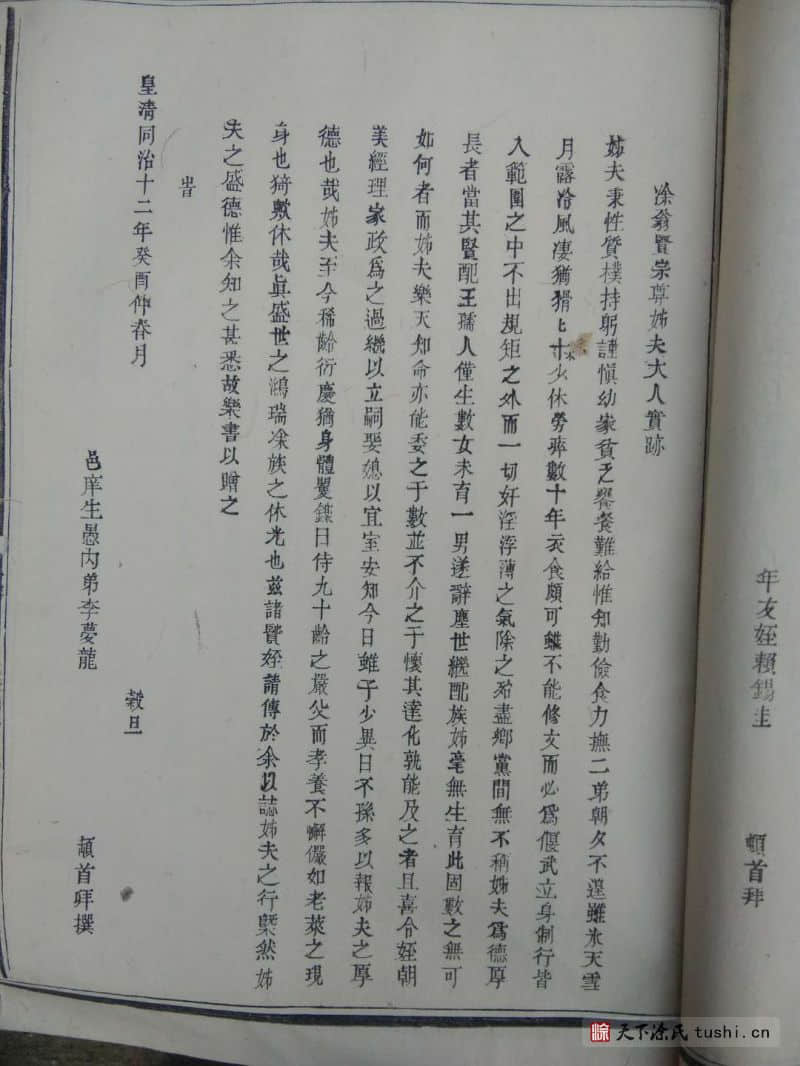 年友姪賴錫圭 頓首拜
凃翁賢宗尊姊夫大人實跡
姊夫秉性質樸持躬謹慎幼家貧乏饔餐難給惟知勤儉食力撫二弟朝夕不遑雖氷天雪
月露冷風凄猶猾匕𠦑少休勞瘁數十年衣食頗可雖不能修文而必為偃武立身制行皆
入範圍之中不出規矩之外而一切奸淫浮薄之氣除之殆盡鄉黨間無不稱姊夫為德厚
長者當其賢配王孺人僅生數女未育一男遂辭塵世繼配族姊毫無生育此固數之無可
如何者而姊夫樂天知命亦能委之于數並不介之于懷其達化孰能及之者且喜令姪朝
美經理家政為之過繼以立嗣娶媳以宜室安知今日雖子少異日不孫多以報姊夫之厚
德也哉姊夫至今稀齡衍慶猶身體矍鑠日侍九十齡之嚴父而孝養不懈儼如老萊之現
身也猗歟休哉眞盛世之鴻瑞凃族之休光也茲諸賢姪請傳於余以誌姊夫之行槩然姊
夫之盛德惟余知之甚悉故樂書以贈之
旹
皇清同治十二年癸酉仲春月 穀旦
邑庠生愚內弟李夢龍 頓首拜撰
凃 天下凃氏 tushi.cn